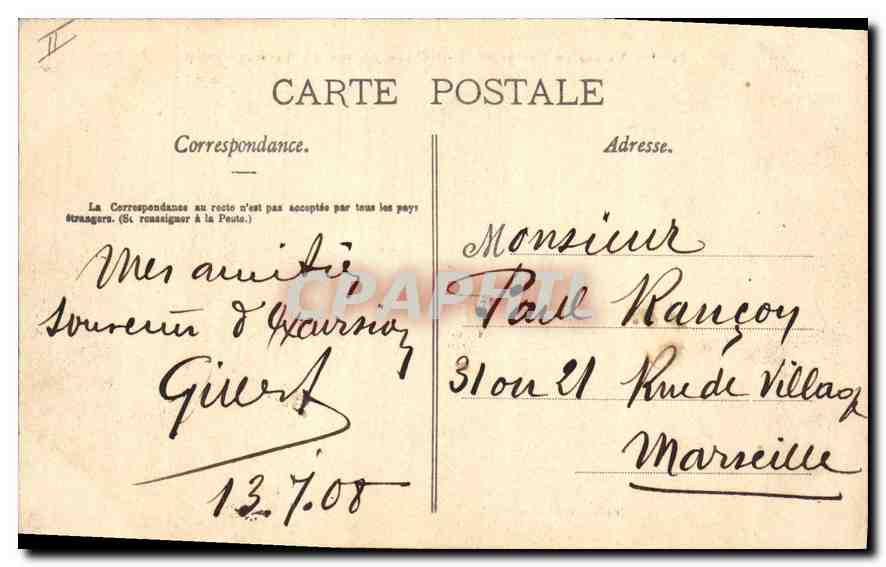 II
CARTE POSTALE
Correspondance.
La Correspondance au recto n'est pas acceptée par tous les pays
étrangers. (Se renseigner à la Poste.)
Mes amitiés
souvenir d'Excursion
13.7.08
Adresse.
Monsieur
Paul Rançoy
31 ou 21 Rue de Village
Marseille
CPAPHIL